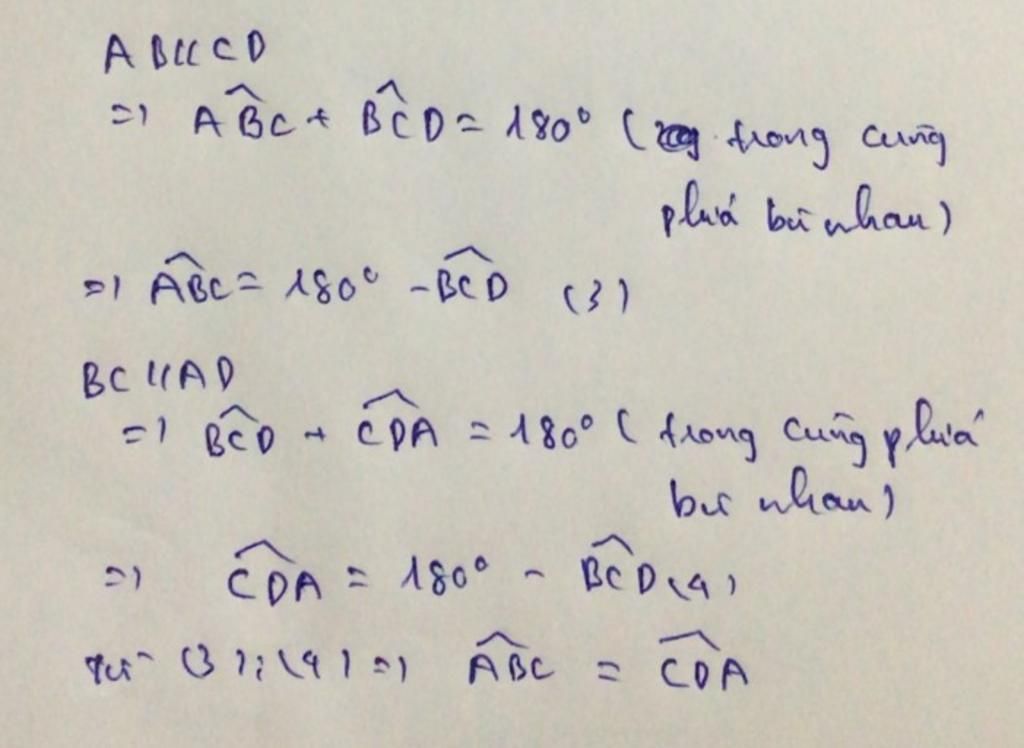 AB//CD
=> ABC^ + BCD^ = 180° ( trong cùng
phía bù nhau)
=> ABC^ = 180° - BCD^ (3)
BC//AD
=> BCD^ + CDA^ = 180° ( trong cùng phía
bù nhau)
=> CDA^ = 180° - BCD^ (4)
từ (3); (4) => ABC^ = CDA^